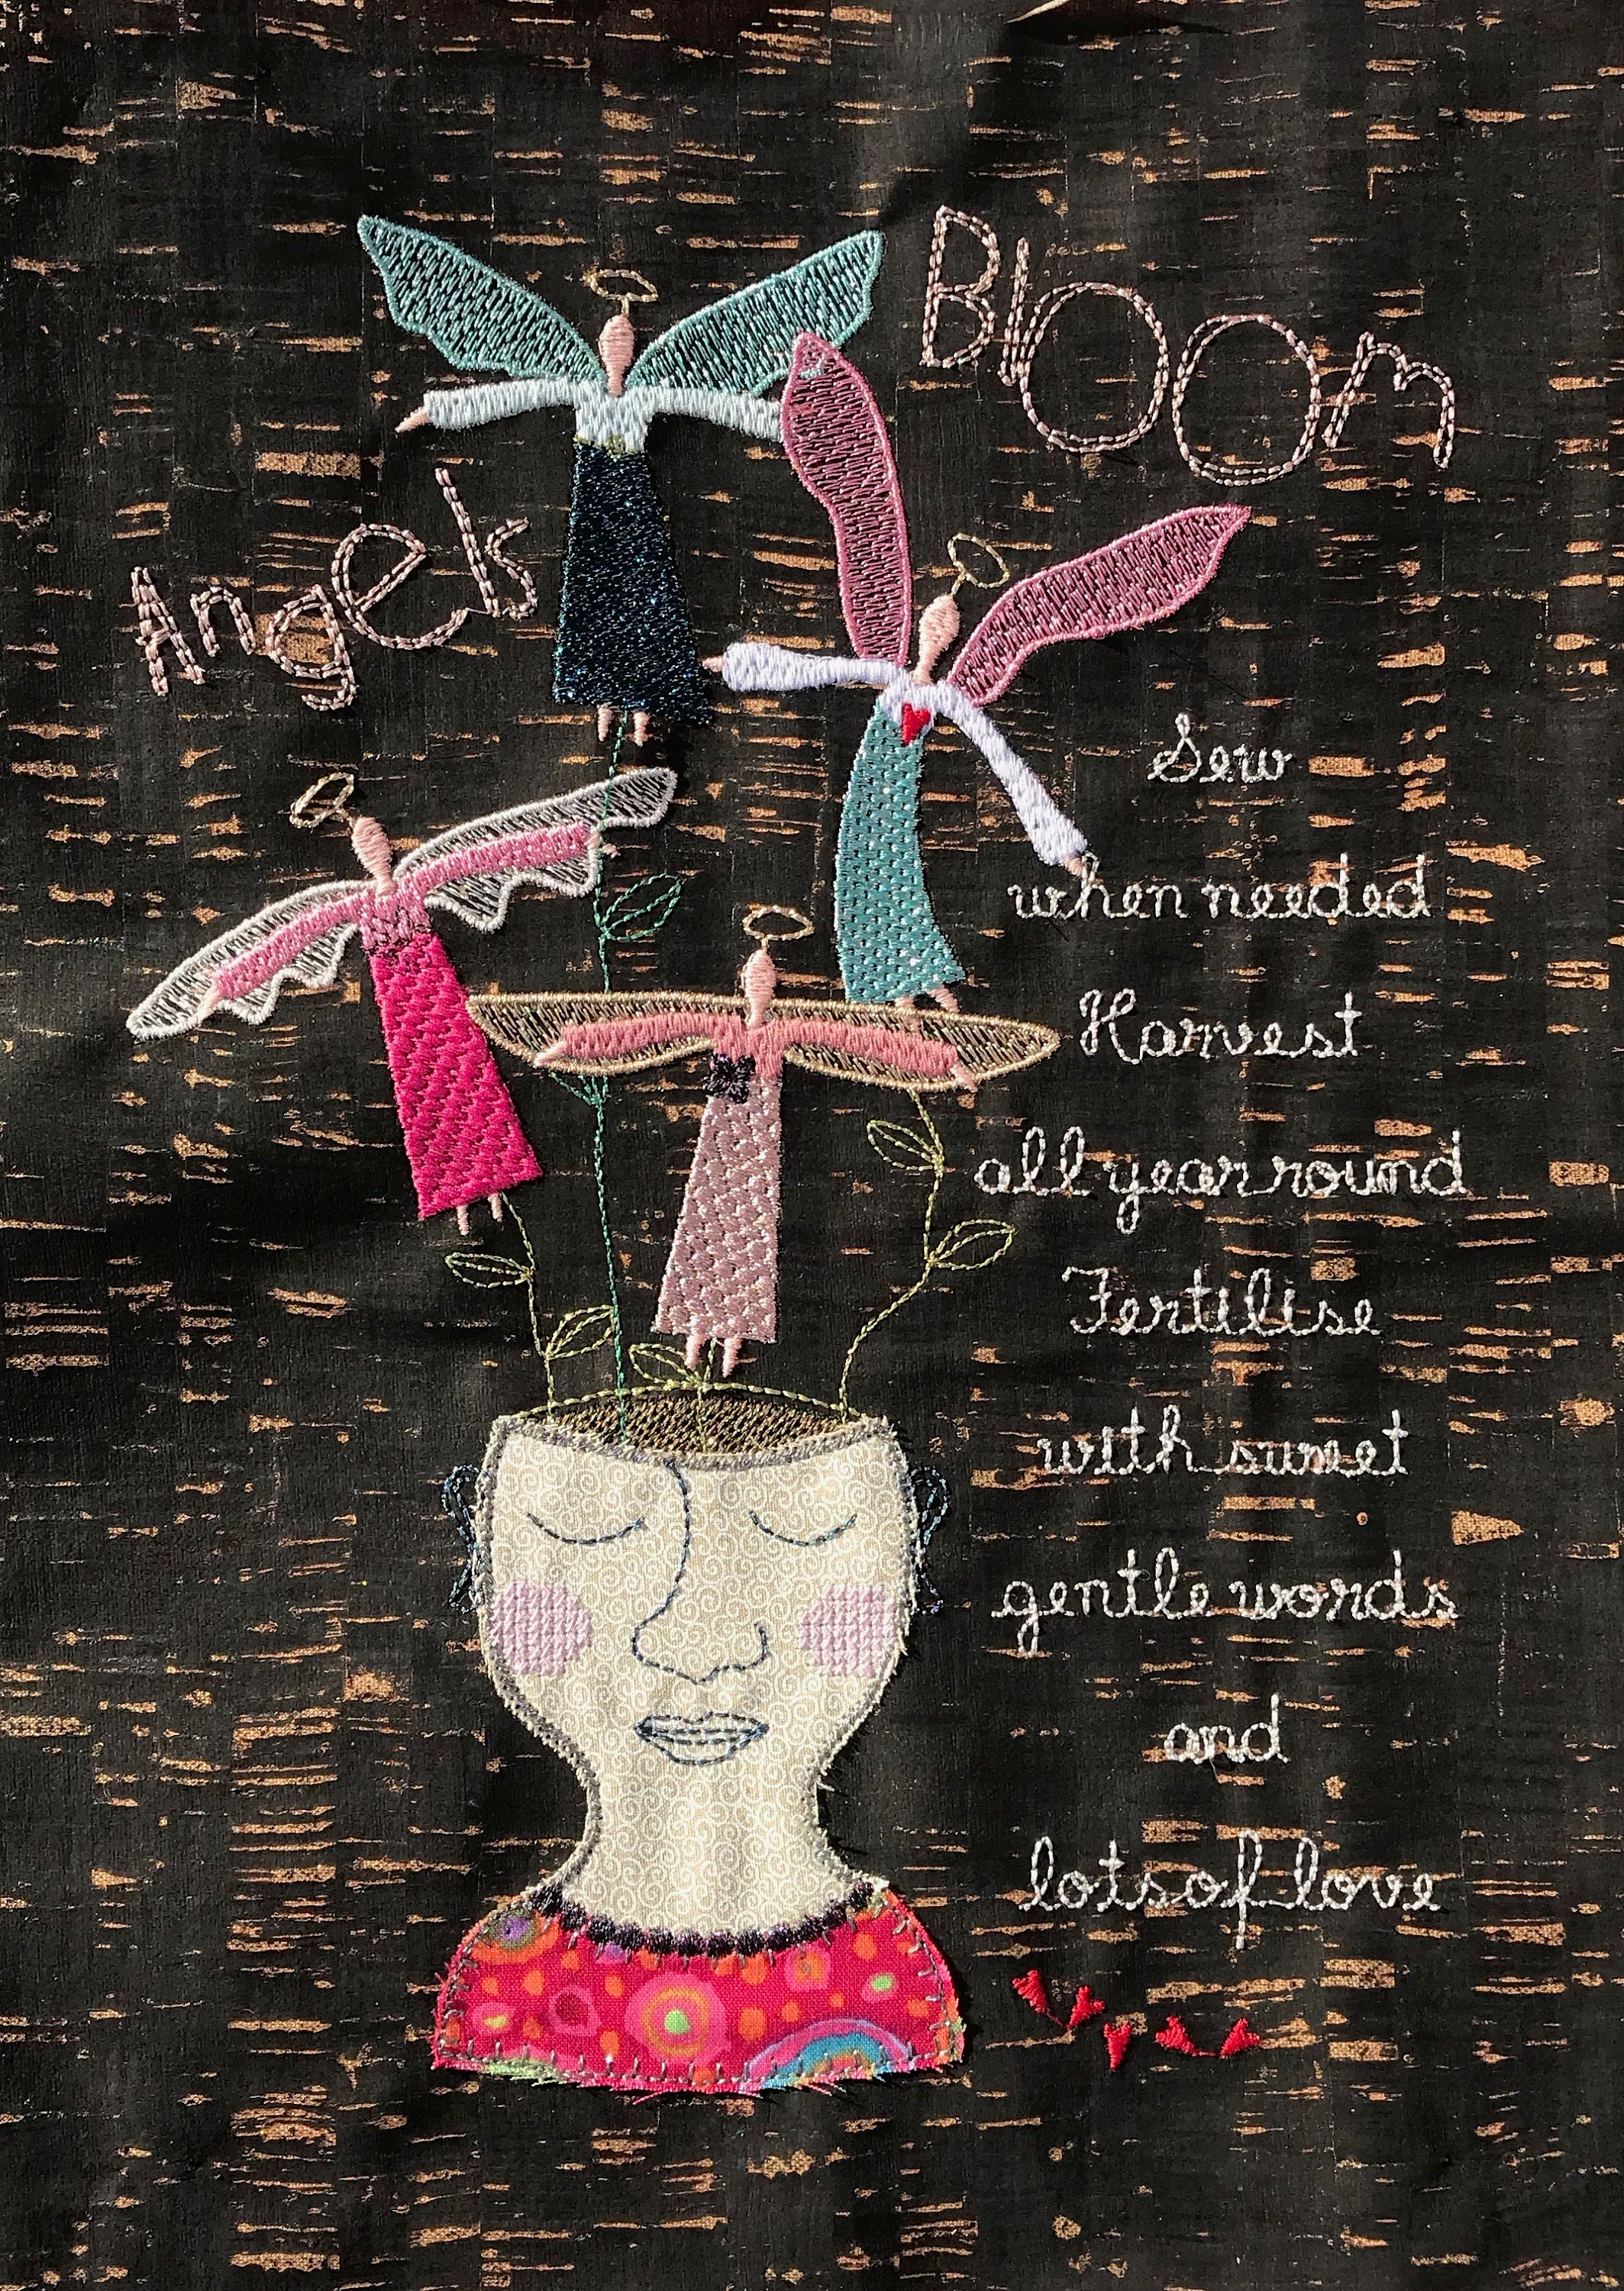 Angels
Bloom
Sew
when needed
Harvest
all year round
Fertilise
with sweet
gentle words
and
lots of love